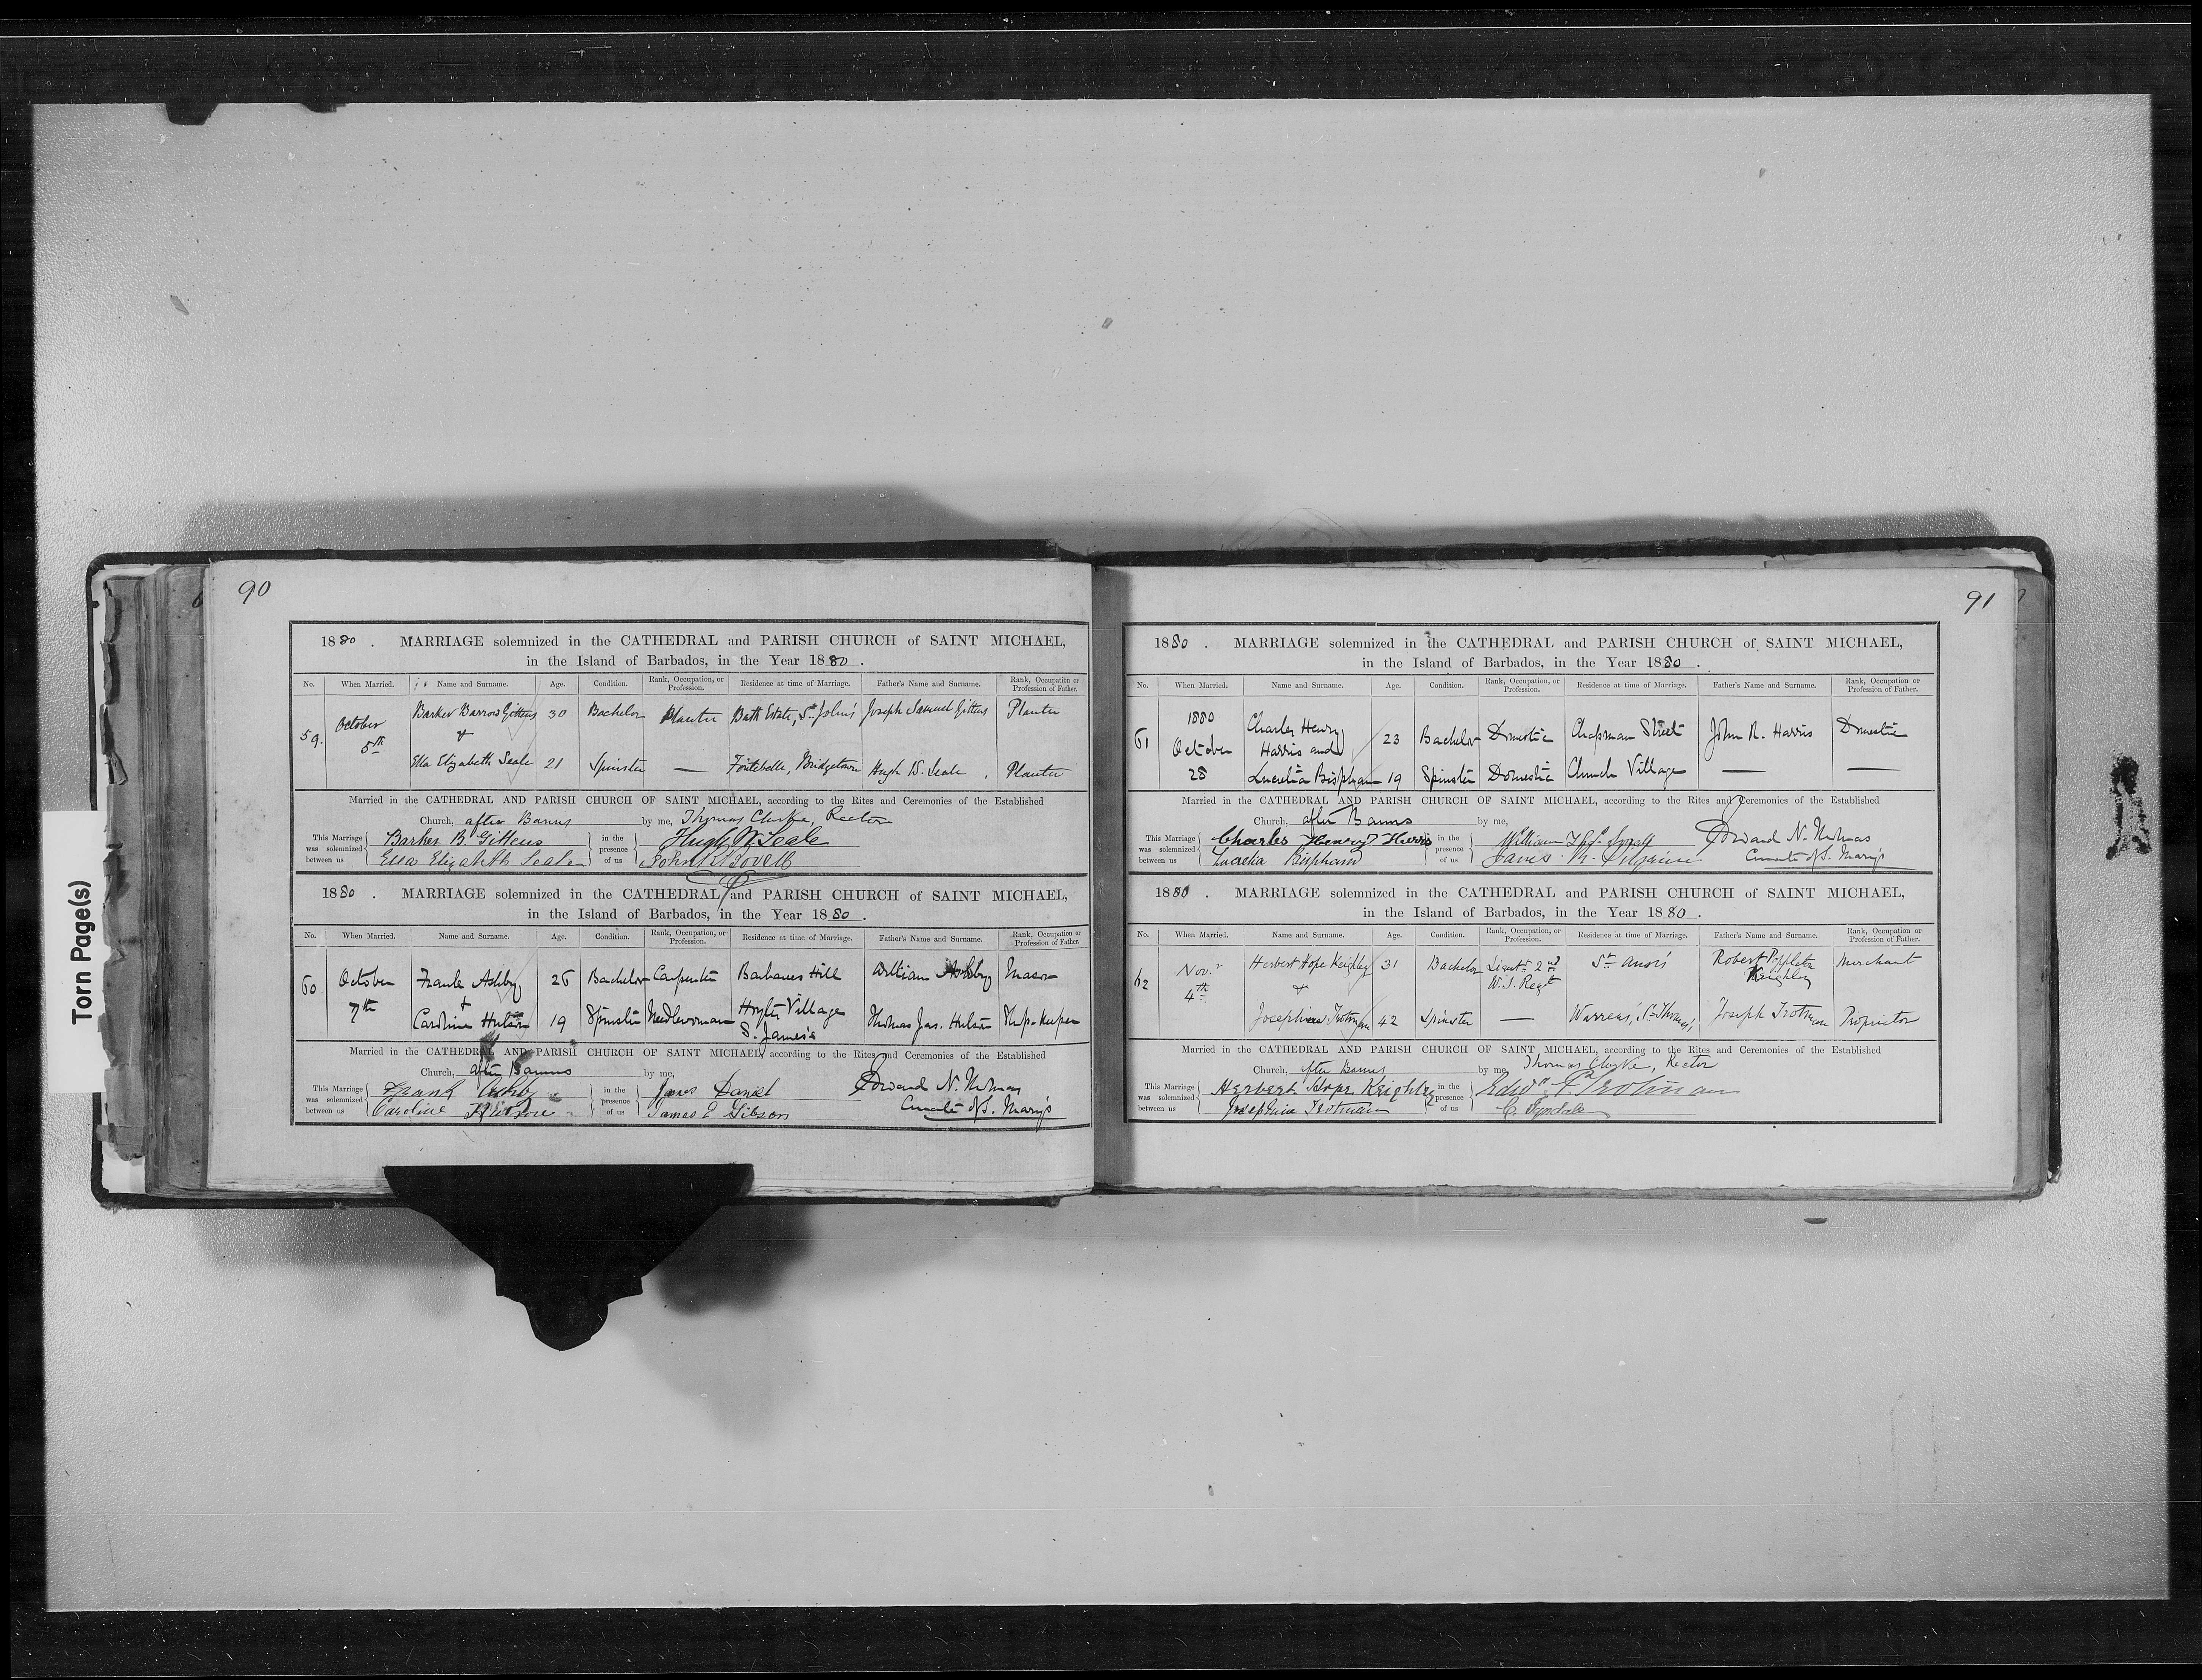 Torn Page(s)
90
1880 . MARRIAGE solemnized in the CATHEDRAL and PARISH CHURCH of SAINT MICHAEL,
in the Island of Barbados, in the Year 1880 .
No. When Married. Name and Surname. Age. Condition. Rank, Occupation, or Profession. Residence at time of Marriage. Father's Name and Surname. Rank, Occupation or Profession of Father.
59. October 5th Barker Barrow Gittens 30 Bachelor Planter Bath Estate, St. John's Joseph Samuel Gittens Planter
&
Ella Elizabeth Seale 21 Spinster — Fontabelle, Bridgetown Hugh W. Seale Planter
Married in the CATHEDRAL AND PARISH CHURCH OF SAINT MICHAEL, according to the Rites and Ceremonies of the Established
Church, after Banns by me, Thomas Clarke, Rector
This Marriage was solemnized between us Barker B Gittens in the presence of us Hugh W Seale
Ella Elizabeth Seale John R Bovell
1880 . MARRIAGE solemnized in the CATHEDRAL and PARISH CHURCH of SAINT MICHAEL,
in the Island of Barbados, in the Year 1880 .
No. When Married. Name and Surname. Age. Condition. Rank, Occupation, or Profession. Residence at time of Marriage. Father's Name and Surname. Rank, Occupation or Profession of Father.
60 October 7th Frank Ashby 26 Bachelor Carpenter Barbarees Hill William Ashby Mason
+
Caroline Hutson 19 Spinster Needlewoman Hoytes Village S. James's Thomas Jas. Hutson Shop-keeper
Married in the CATHEDRAL AND PARISH CHURCH OF SAINT MICHAEL, according to the Rites and Ceremonies of the Established
Church, after Banns by me,
This Marriage was solemnized between us Frank Ashby in the presence of us James Daniel Edward N.
Caroline Hutson James E Gibson Curate of S. Mary's
91
1880 . MARRIAGE solemnized in the CATHEDRAL and PARISH CHURCH of SAINT MICHAEL,
in the Island of Barbados, in the Year 1880 .
No. When Married. Name and Surname. Age. Condition. Rank, Occupation, or Profession. Residence at time of Marriage. Father's Name and Surname. Rank, Occupation or Profession of Father.
61 1880 October 28 Charles Henry Harris and 23 Bachelor Domestic Chapman Street John R. Harris Domestic
Lucretia Bispham 19 Spinster Domestic Church Village — —
Married in the CATHEDRAL AND PARISH CHURCH OF SAINT MICHAEL, according to the Rites and Ceremonies of the Established
Church, after Banns by me,
This Marriage was solemnized between us Charles Henry Harris in the presence of us William Edward N.
Lucretia Bispham James Curate of S. Mary's
1880 . MARRIAGE solemnized in the CATHEDRAL and PARISH CHURCH of SAINT MICHAEL,
in the Island of Barbados, in the Year 1880 .
No. When Married. Name and Surname. Age. Condition. Rank, Occupation, or Profession. Residence at time of Marriage. Father's Name and Surname. Rank, Occupation or Profession of Father.
62 Novr 4th Herbert Hope Keighley 31 Bachelor Lieutt 2nd W. I. Regt St. Ann's Robert Popplete Keighley Merchant
&
Josephine Trotman 42 Spinster — Warrens, St. Thomas, Joseph Trotman Proprietor
Married in the CATHEDRAL AND PARISH CHURCH OF SAINT MICHAEL, according to the Rites and Ceremonies of the Established
Church, after Banns by me, Thomas Clarke, Rector
This Marriage was solemnized between us Herbert Hope Keighley in the presence of us Edwd Trotman
Josephine Trotman C. Tyndale